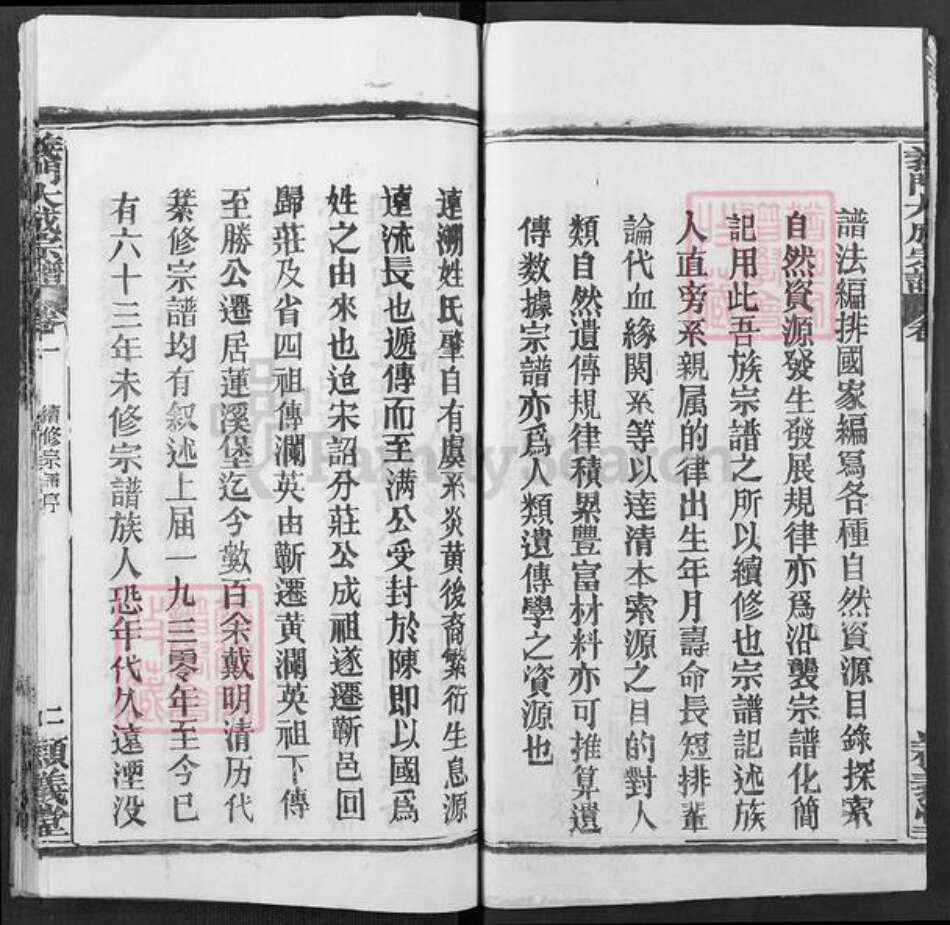 譜法編排國家編寫各種自然資源目錄探索
自然資源發生發展規律亦爲沿襲宗譜化簡
記用此吾族宗譜之所以續修也宗譜記述族
人直旁系親属的律出生年月壽命長短排輩
論代血緣関系等以達清本索源之目的對人
類自然遺傳規律積累豐富材料亦可推算遺
傳数據宗譜亦爲人類遺傳學之資源也
連溯姓氏肇自有虞系炎黄後裔繁衍生息源
遠流長也遞傳而至满公受封於陳即以國爲
姓之由來也迨宋詔分莊公成祖遂遷蘄邑回
歸莊及省四祖傳瀾英由蘄遷黄瀾英祖下傳
至勝公遷居蓮溪堡迄今數百余戴明清历代
纂修宗譜均有叙述上届一九三零年至今已
有六十三年未修宗譜族人恐年代久遠湮没
義門大成宗譜
卷一
續修宗譜序
二
義堂
FamilySearch